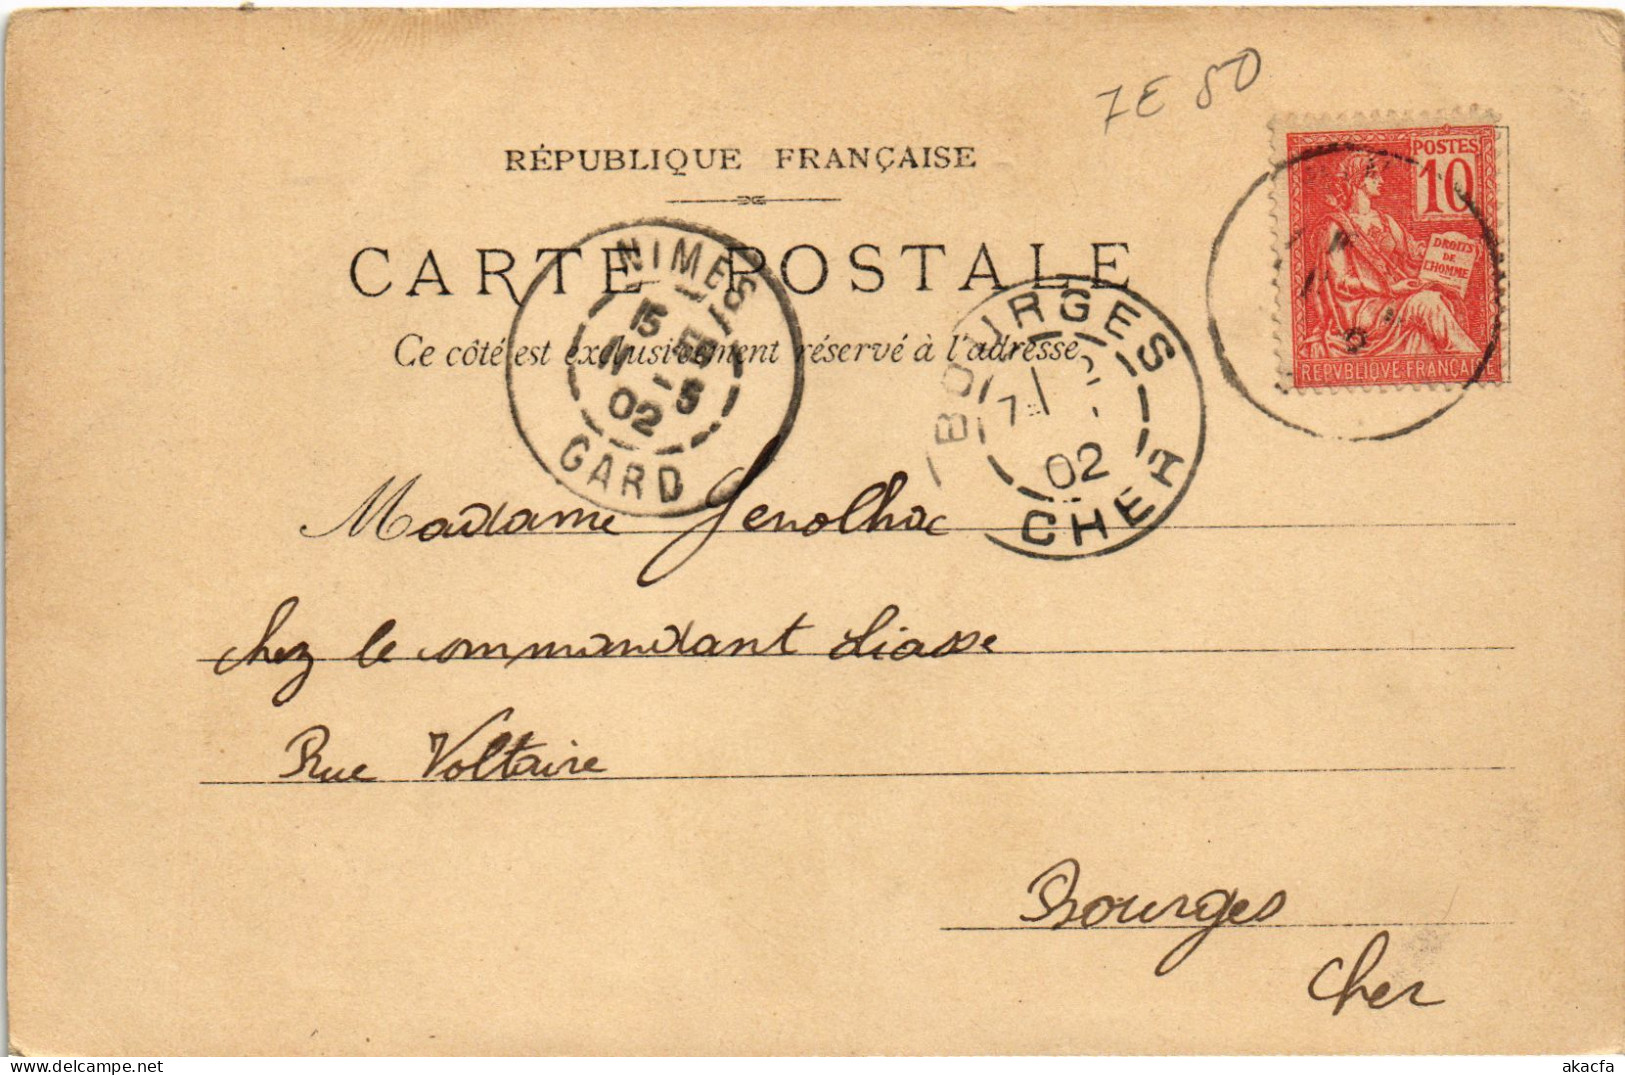 7E 80
RÉPUBLIQUE FRANÇAISE
POSTES
10
DROITS
DE
L'HOMME
REPVBLIQUE FRANÇAISE
CARTE POSTALE
Ce côté est exclusivement réservé à l'adresse
NIMES
15
02
GARD
BOURGES
7
02
CHER
Madame Genolhac
chez le commandant Liasse
Rue Voltaire
Bourges
Cher
akacfa